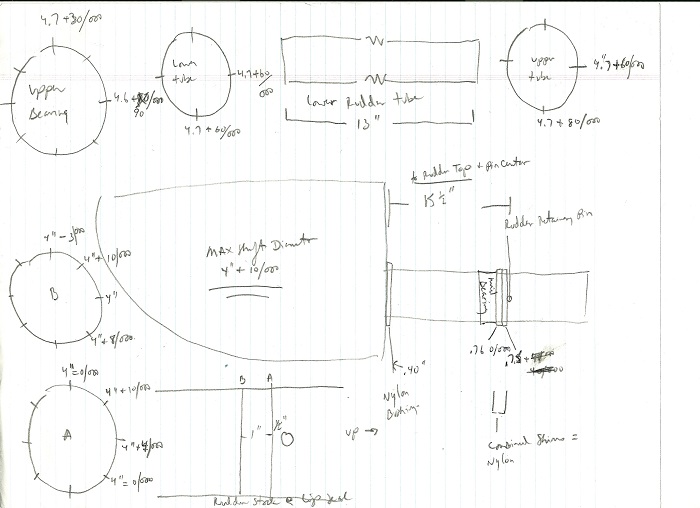 4.7+30/000
Upper
Bearing
4.6+
90
Lower
tube
4.7+60/
000
4.7+60/000
Lower Rudder tube
13"
upper
tube
4."7+60/000
4.7+80/000
to Rudder Top + pin Center
15 ½"
Rudder Retaining Pin
MAX shaft Diameter
4"+10/000
4"-3/000
4"+10/000
B
4"
4"+8/000
Bearing
.76 0/000
.40"
Nylon
Bushing
up →
Combined Shims =
Nylon
4"=0/000
4"+10/000
A
4"=0/000
B
A
1"
½"
Rudder Stock @ lip seal